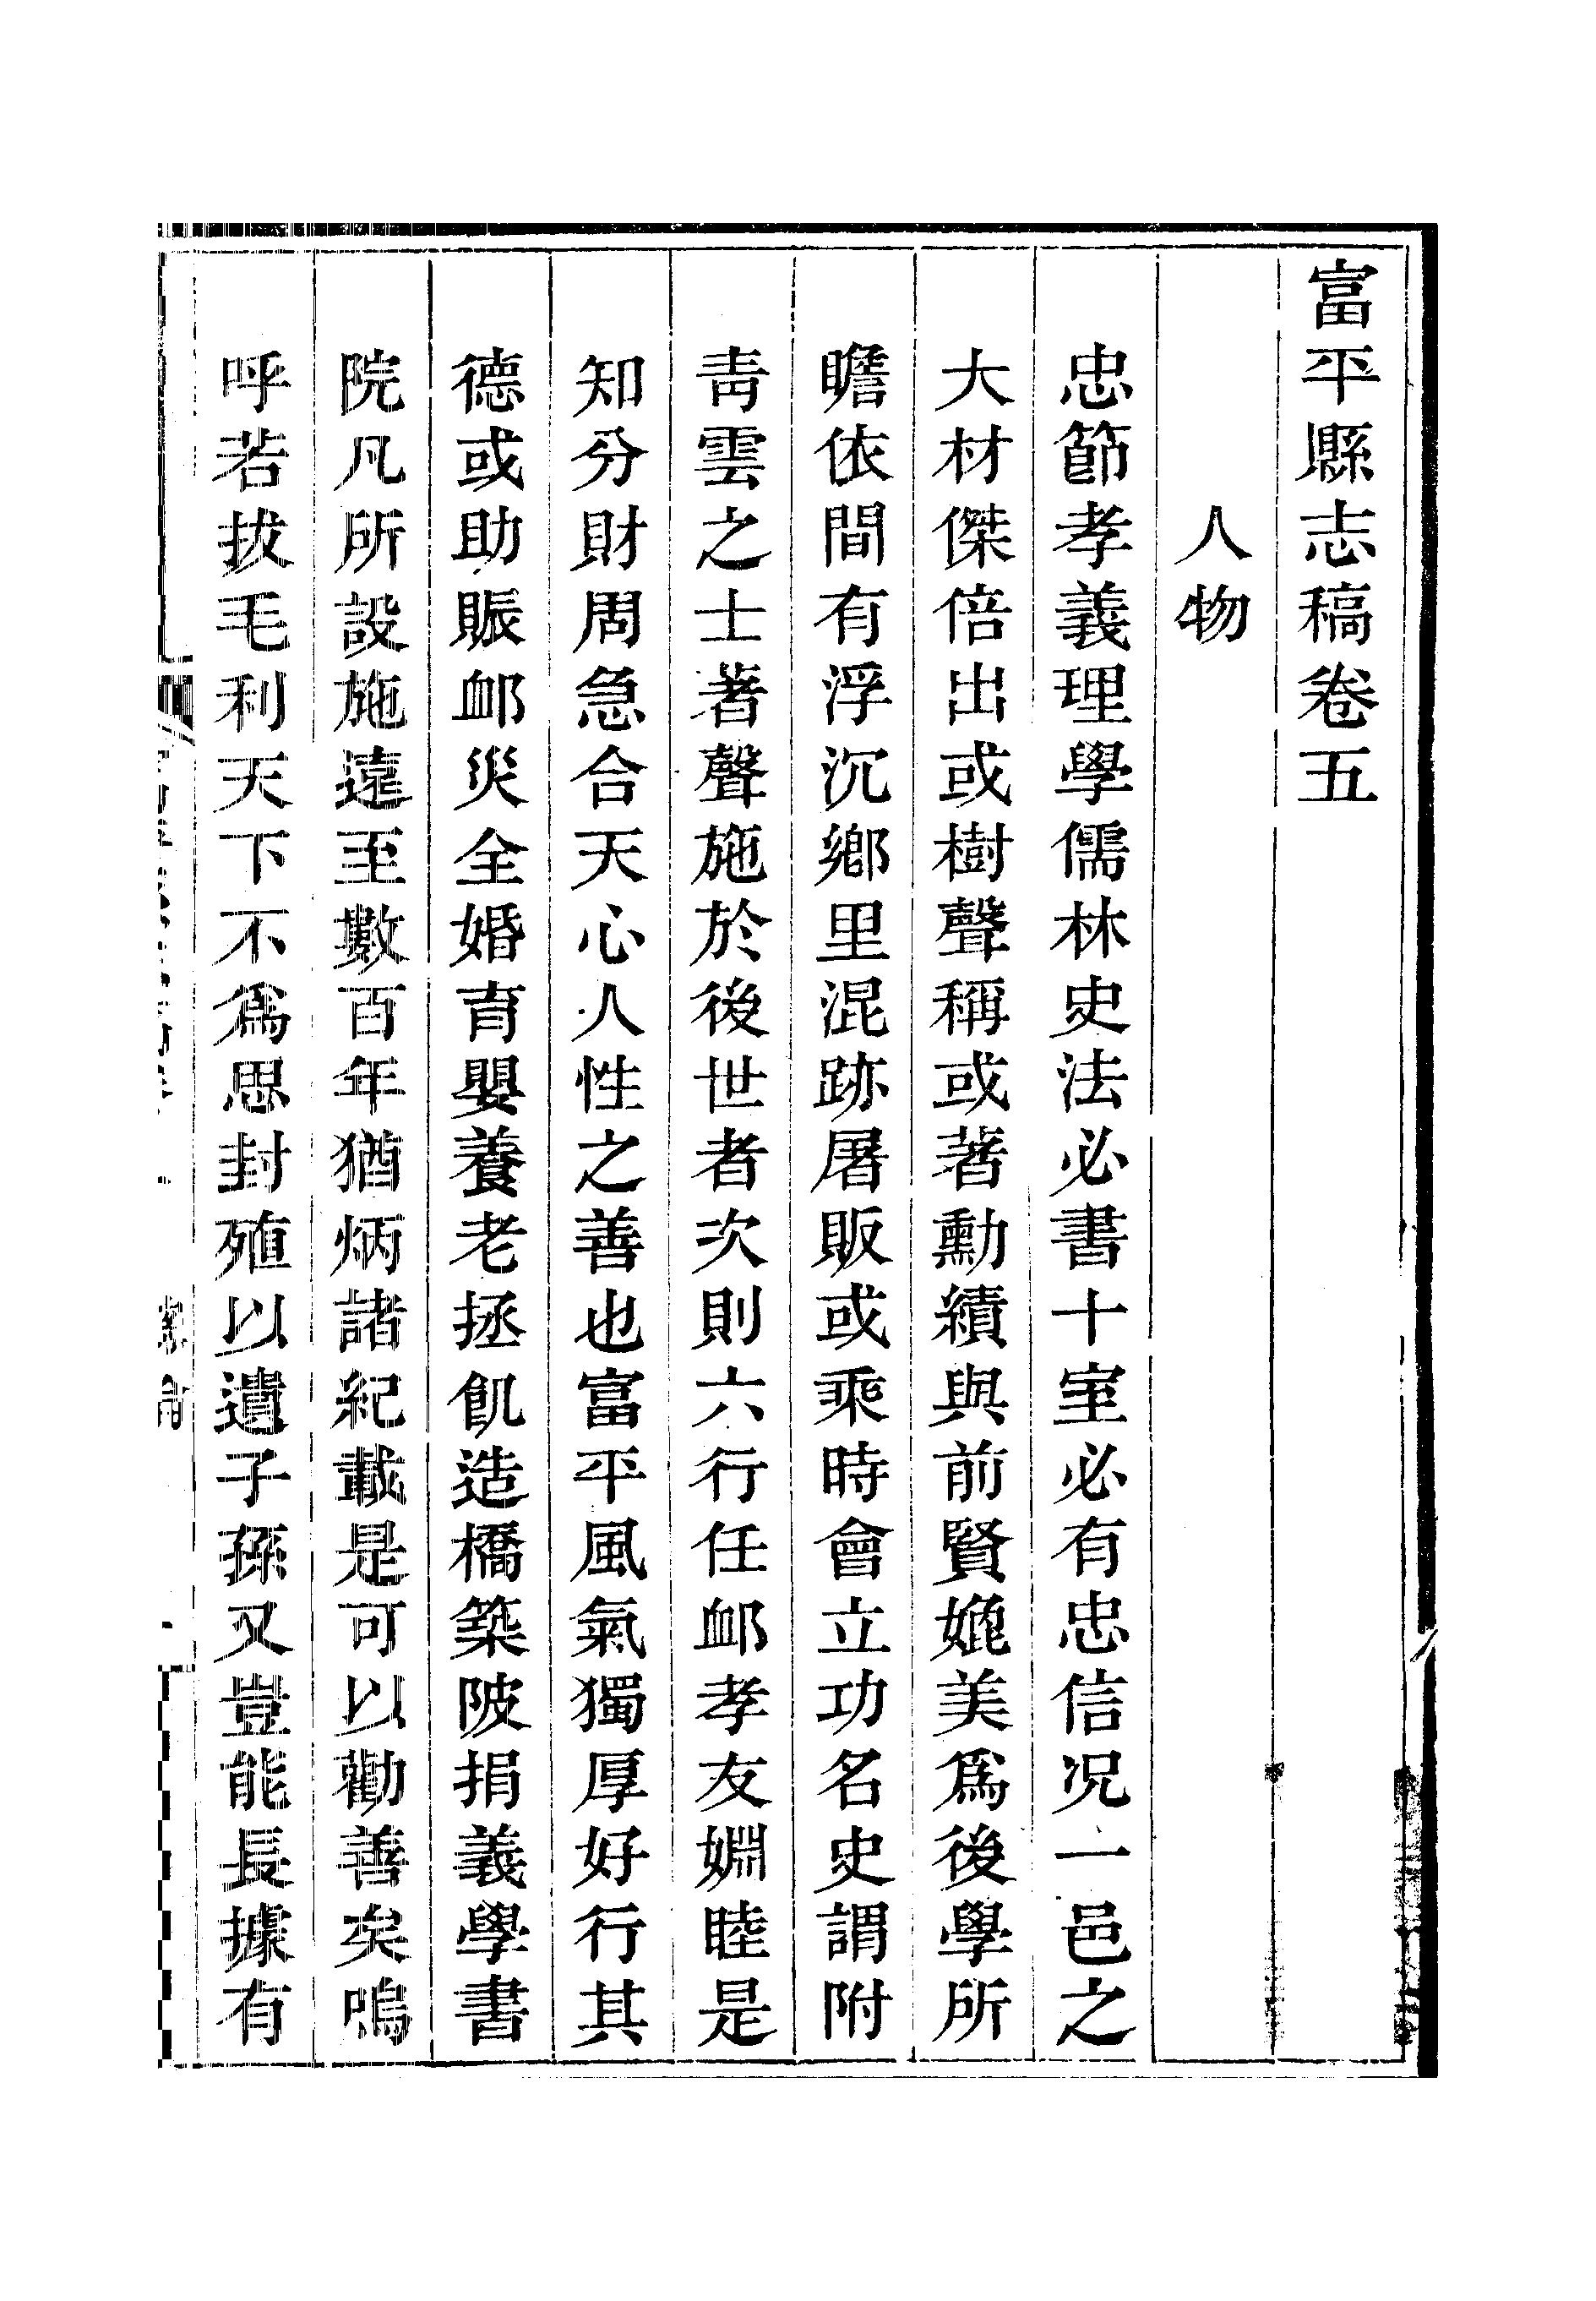 富平縣志稿卷五
人物
忠節孝義理學儒林史法必書十室必有忠信况一邑之
大材傑倍出或樹聲稱或著勳績與前賢媲美爲後學所
瞻依間有浮沉鄉里混跡屠販或乘時會立功名史謂附
青雲之士著聲施於後世者次則六行任衈孝友婣睦是
知分財周急合天心人性之善也富平風氣獨厚好行其
德或助賑衈災全婚育嬰養老拯飢造橋築陂捐義學書
院凡所設施遠至數百年猶炳諸紀載是可以勸善矣嗚
呼若拔毛利天下不爲思封殖以遺子孫又豈能長據有